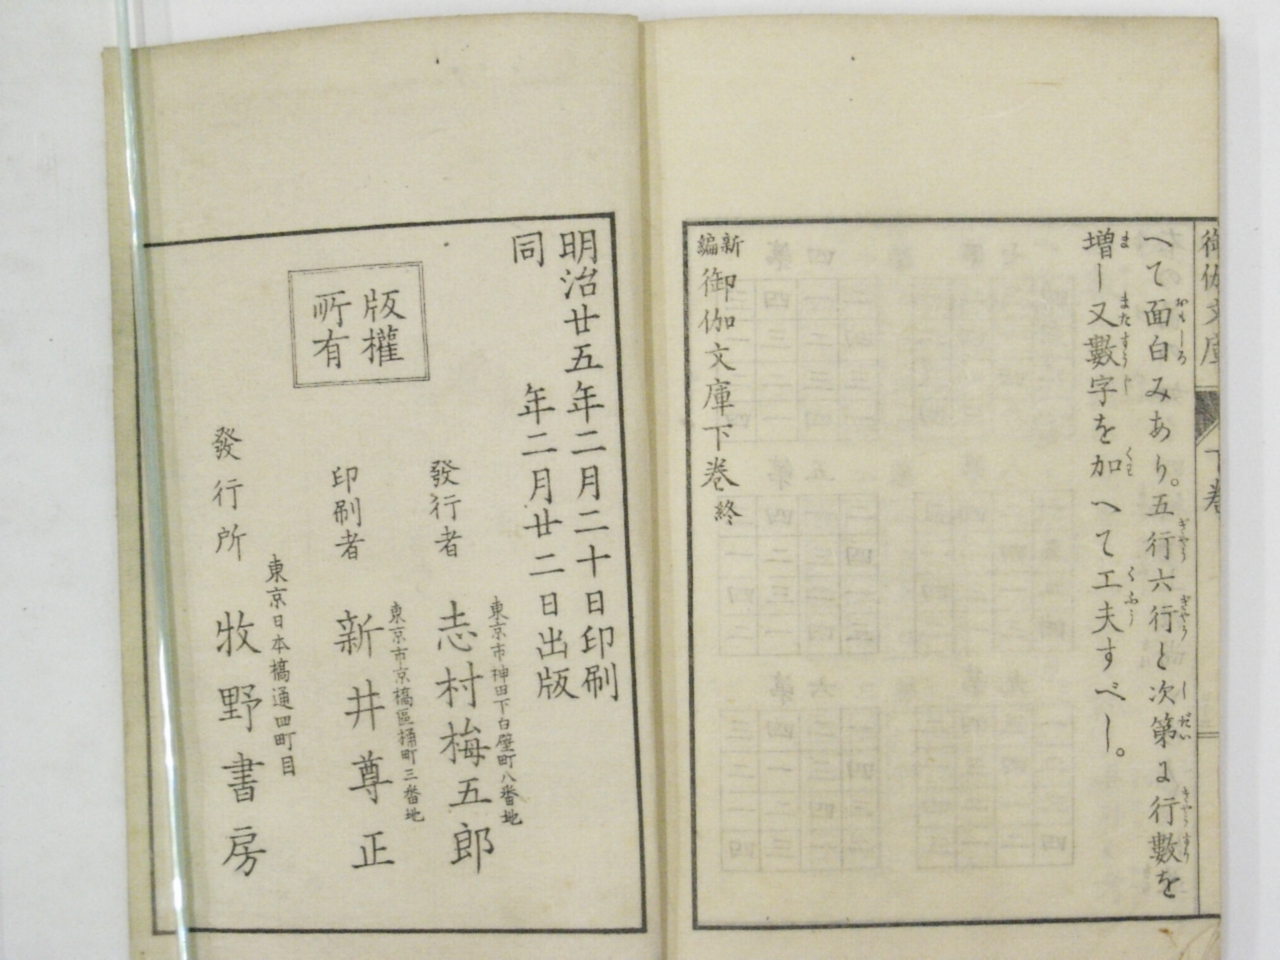 御伽文庫
下巻
へて面白みあり。五行六行と次第に行數を
増し又數字を加へて工夫すべし。
新編御伽文庫下巻終
明治廿五年二月二十日印刷
同年二月廿二日出版
版權
所有
東京市神田下白壁町八番地
發行者 志村梅五郎
東京市京橋區桶町三番地
印刷者 新井尊正
東京日本橋通四町目
發行所 牧野書房